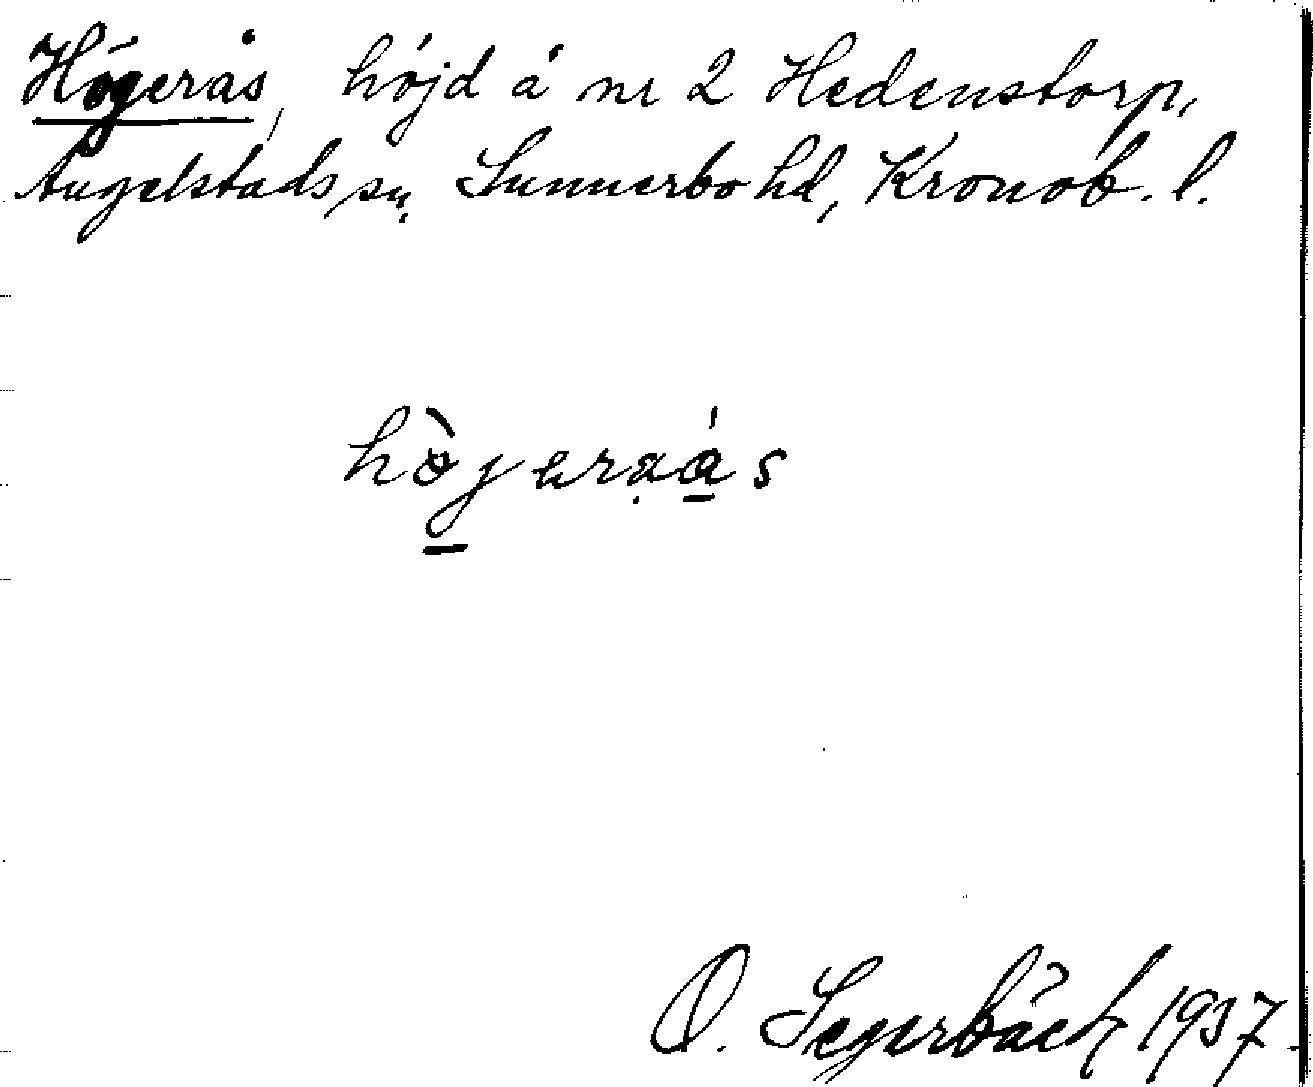 Högerås, höjd å nr 2 Hedenstorp,
Angelstads sn, Sunnerbo hd, Kronob. l.
hò̱jeraá̱s
O. Segerbäck 1937